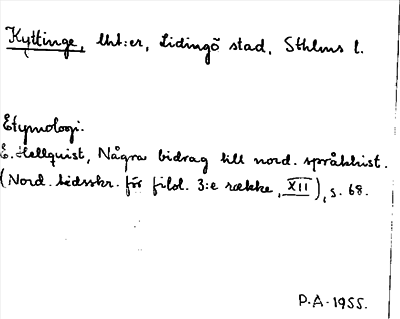 Kyttinge, lht:er, Lidingö stad, Sthlms l.
Etymologi.
E. Hellquist, Några bidrag till nord. språkhist.
(Nord. tidsskr. för filol. 3:e række, XII), s. 68.
P.A. 1955.